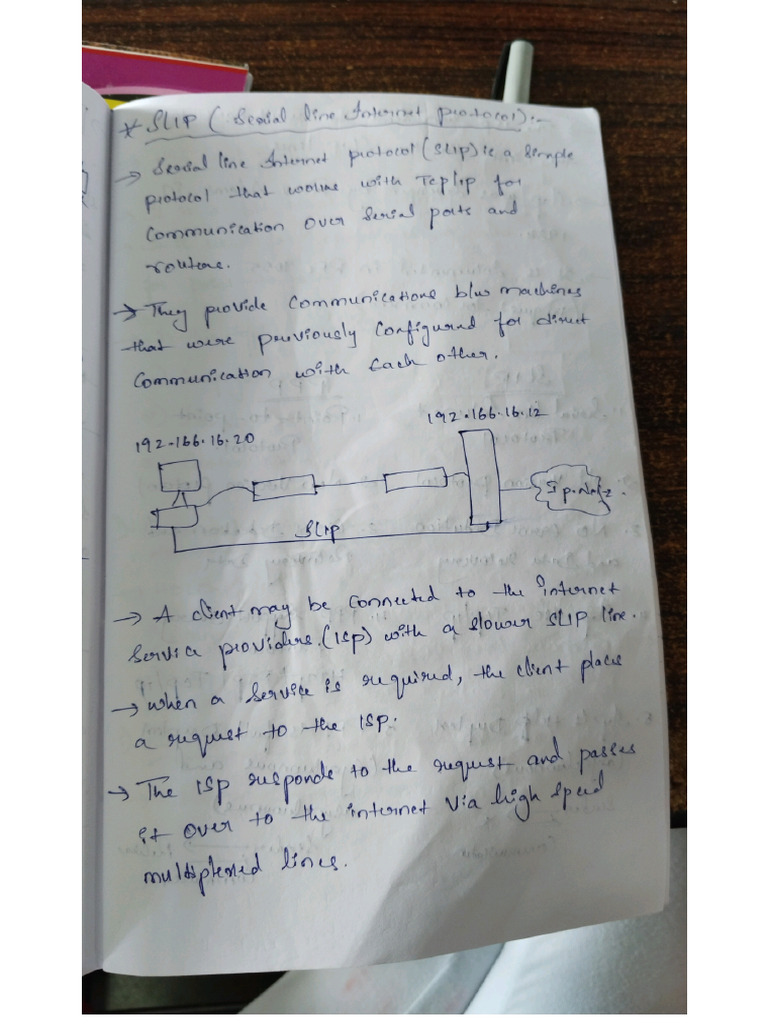 * SLIP ( Serial line Internet protocol) :-
→ Serial line Internet protocol (SLIP) is a simple
protocol that works with Tcp/ip for
Communication over serial ports and
routers.
→ They provide Communications b/w machines
that were previously Configured for direct
Communication with Each other.
192.166.16.12
192.166.16.20
SLIP
→ A client may be Connected to the internet
Service providers (ISP) with a slower SLIP line.
→ when a Service is required, the client places
a request to the ISP.
→ The ISP responds to the request and passes
it over to the internet via high speed
multiplexed lines.